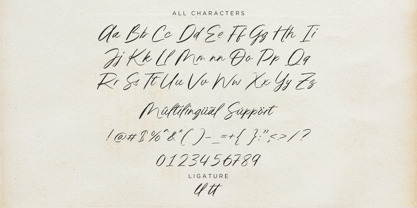 ALL CHARACTERS
Aa Bb Cc Dd Ee Ff Gg Hh Ii
Jj Kk Ll Mm nn Oo Pp Qq
Rr Ss Tt Uu Vv Ww Xx Yy Zz
Multilingual Support
!@#$%^&*()-_=+{}:"<>/?
0123456789
LIGATURE
ll tt